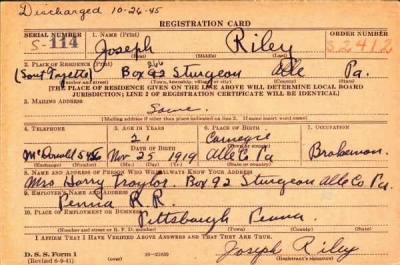 Discharged 10-26-45
REGISTRATION CARD
SERIAL NUMBER 1. NAME (Print) ORDER NUMBER
S-114 Joseph Riley S2412
(First) (Middle) (Last)
2. PLACE OF RESIDENCE (Print)
(South Fayette) Box 92 Sturgeon Alle Pa.
[THE PLACE OF RESIDENCE GIVEN ON THE LINE ABOVE WILL DETERMINE LOCAL BOARD
JURISDICTION; LINE 2 OF REGISTRATION CERTIFICATE WILL BE IDENTICAL]
3. MAILING ADDRESS
Same
[Mailing address if other than place indicated on line 2. If same insert word same]
4. TELEPHONE 5. AGE IN YEARS 6. PLACE OF BIRTH 7. OCCUPATION
21 Carnegie
DATE OF BIRTH
McDonald Nov 25 1919 Alle Co Pa Brakeman
8. NAME AND ADDRESS OF PERSON WHO WILL ALWAYS KNOW YOUR ADDRESS
Mrs Harry Traylor Box 92 Sturgeon Alle Co Pa.
9. EMPLOYER'S NAME AND ADDRESS
Penna R.R.
10. PLACE OF EMPLOYMENT OR BUSINESS
Pittsburgh Penna
(Number and street or R. F. D. number) (Town) (County) (State)
I AFFIRM THAT I HAVE VERIFIED ABOVE ANSWERS AND THAT THEY ARE TRUE.
Joseph Riley
D. S. S. Form 1
(Revised 6-9-41) (Registrant's signature)